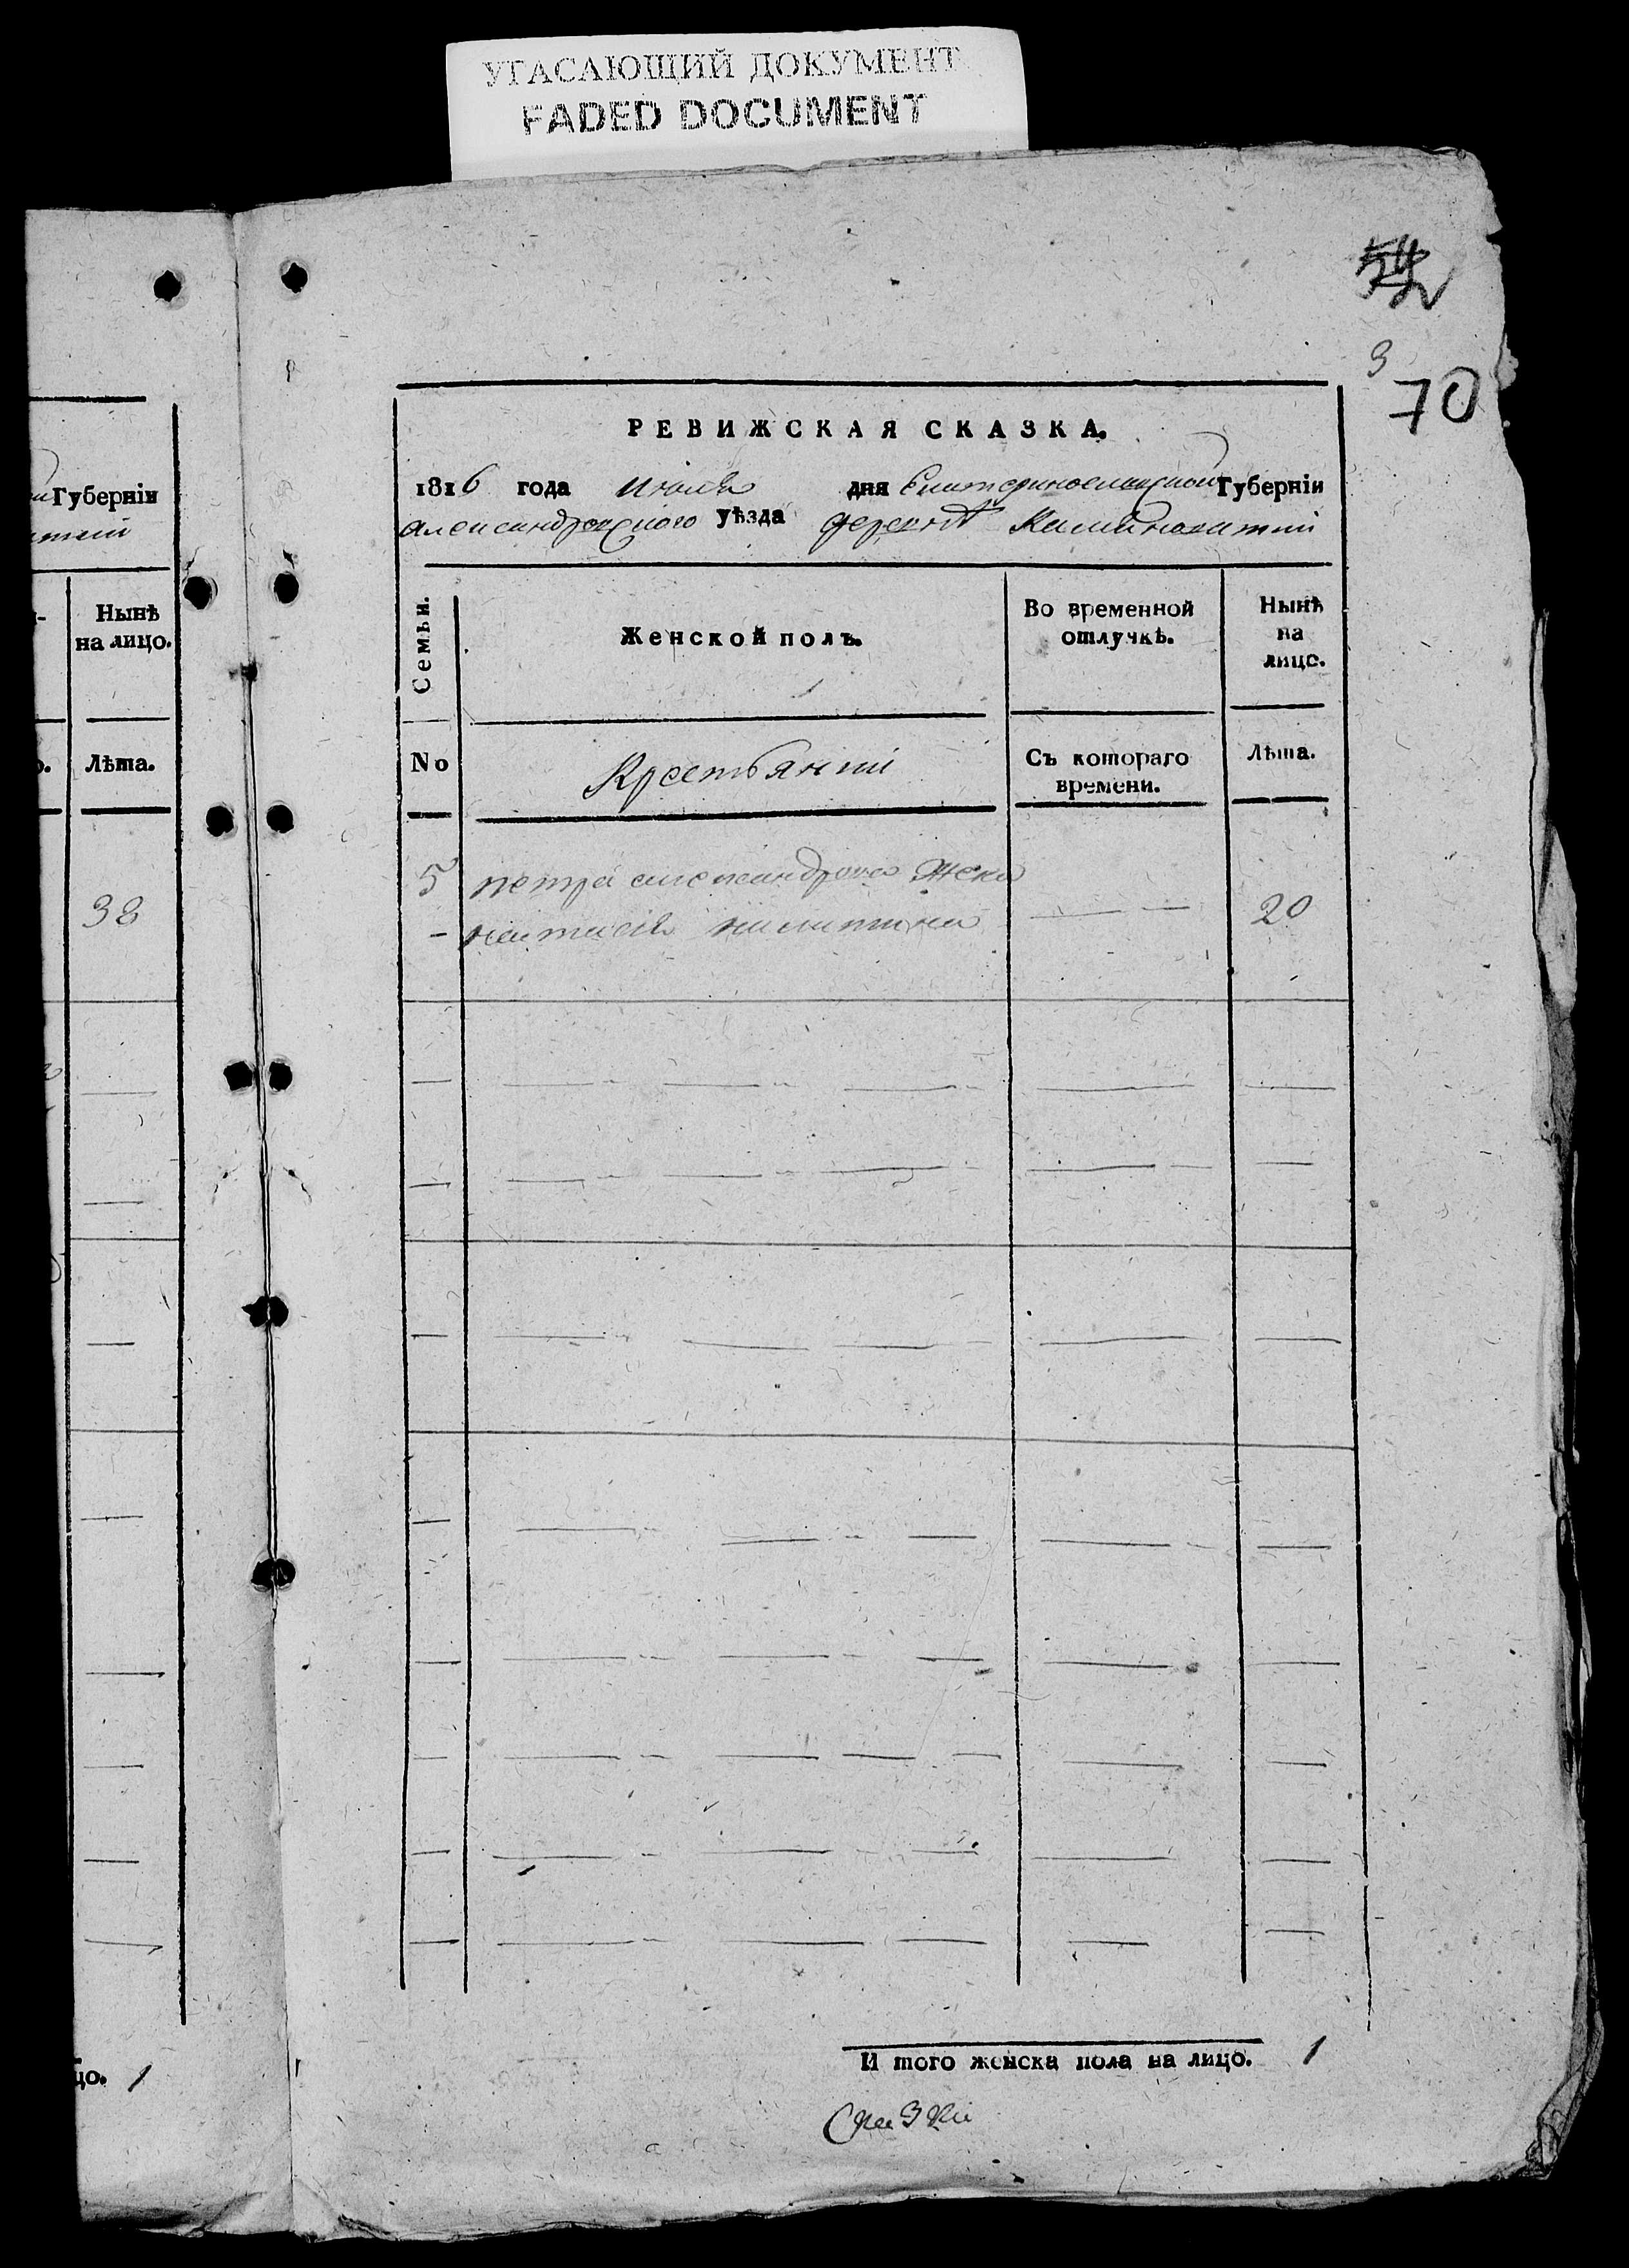 УГАСАЮЩИЙ ДОКУМЕНТ
FADED DOCUMENT
3
70
РЕВИЖСКАЯ СКАЗКА.
1816 года июля дня Екатеринославской Губерніи
александровского уѣзда деревнѣ
Губерніи
Семьи.
Женской полъ.
Во временной отлучкѣ.
Нынѣ на лицо.
No
Крестьянии
Съ котораго времени.
Лѣта.
5 петра александрова жена
– – 20
Нынѣ
на лицо.
Лѣта.
38
И того женска пола на лицо. 1
цо. 1
Сказки